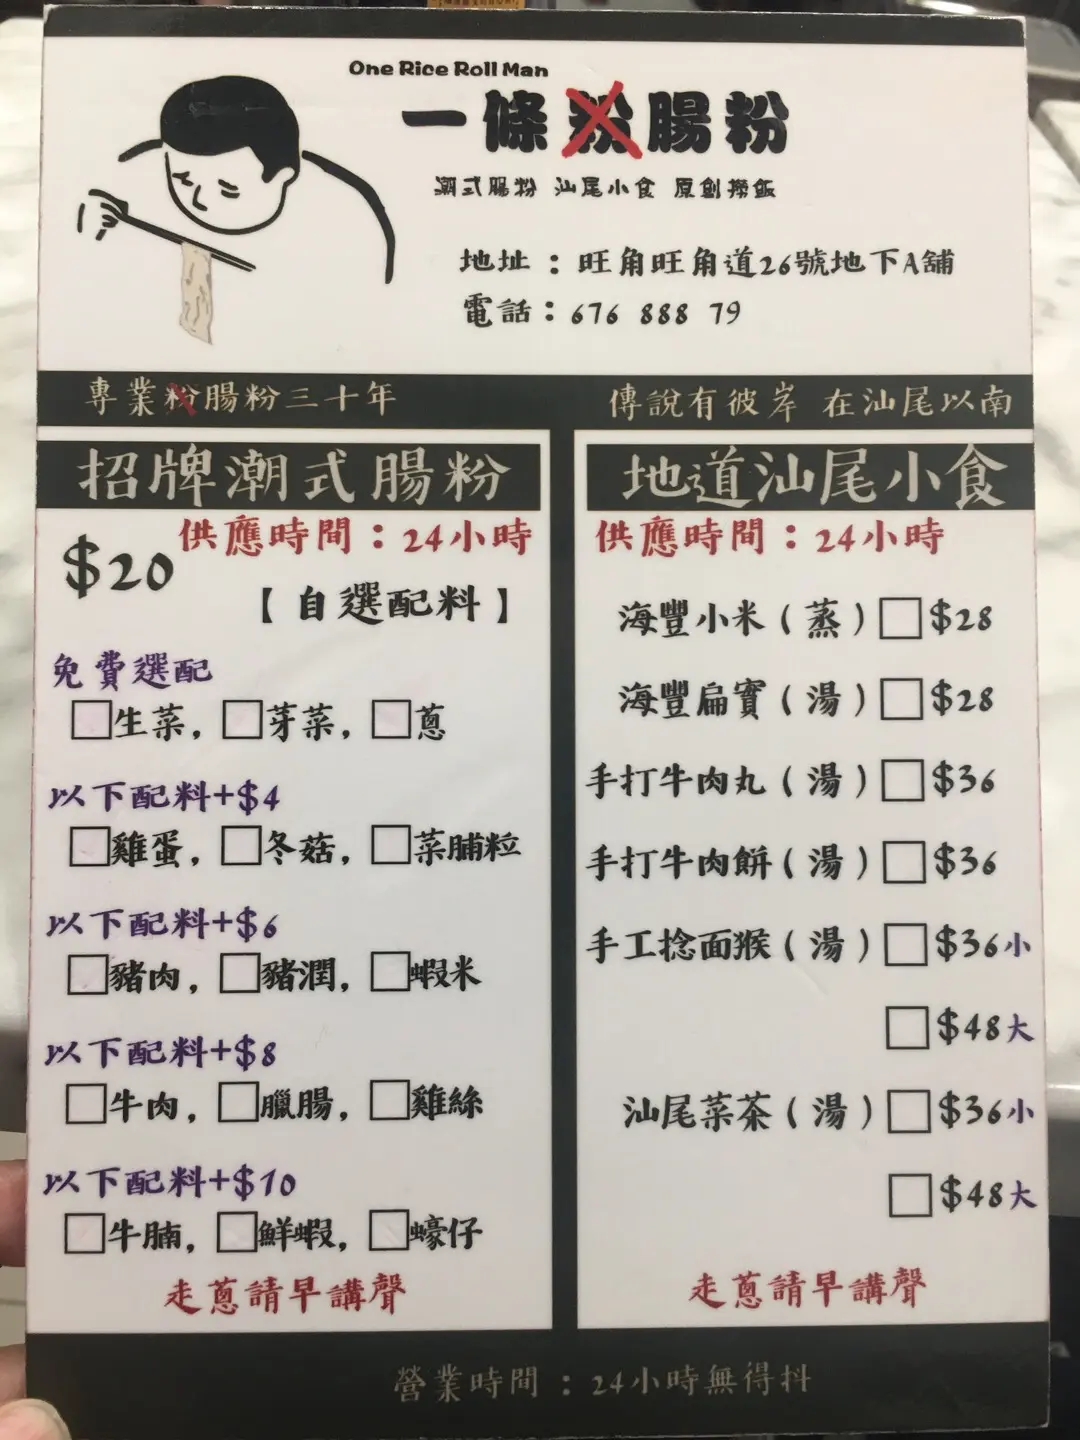 One Rice Roll Man
一條粉腸粉
潮式腸粉 汕尾小食 原創撈飯
地址：旺角旺角道26號地下A舖
電話：676 888 79
專業粉腸粉三十年
傳說有彼岸 在汕尾以南
招牌潮式腸粉
供應時間：24小時
$20
【自選配料】
免費選配
生菜，芽菜，蔥
以下配料+$4
雞蛋，冬菇，菜脯粒
以下配料+$6
豬肉，豬潤，蝦米
以下配料+$8
牛肉，臘腸，雞絲
以下配料+$10
牛腩，鮮蝦，蠔仔
走蔥請早講聲
地道汕尾小食
供應時間：24小時
海豐小米（蒸）$28
海豐扁實（湯）$28
手打牛肉丸（湯）$36
手打牛肉餅（湯）$36
手工捻面猴（湯）$36小
$48大
汕尾菜茶（湯）$36小
$48大
走蔥請早講聲
營業時間：24小時無得抖